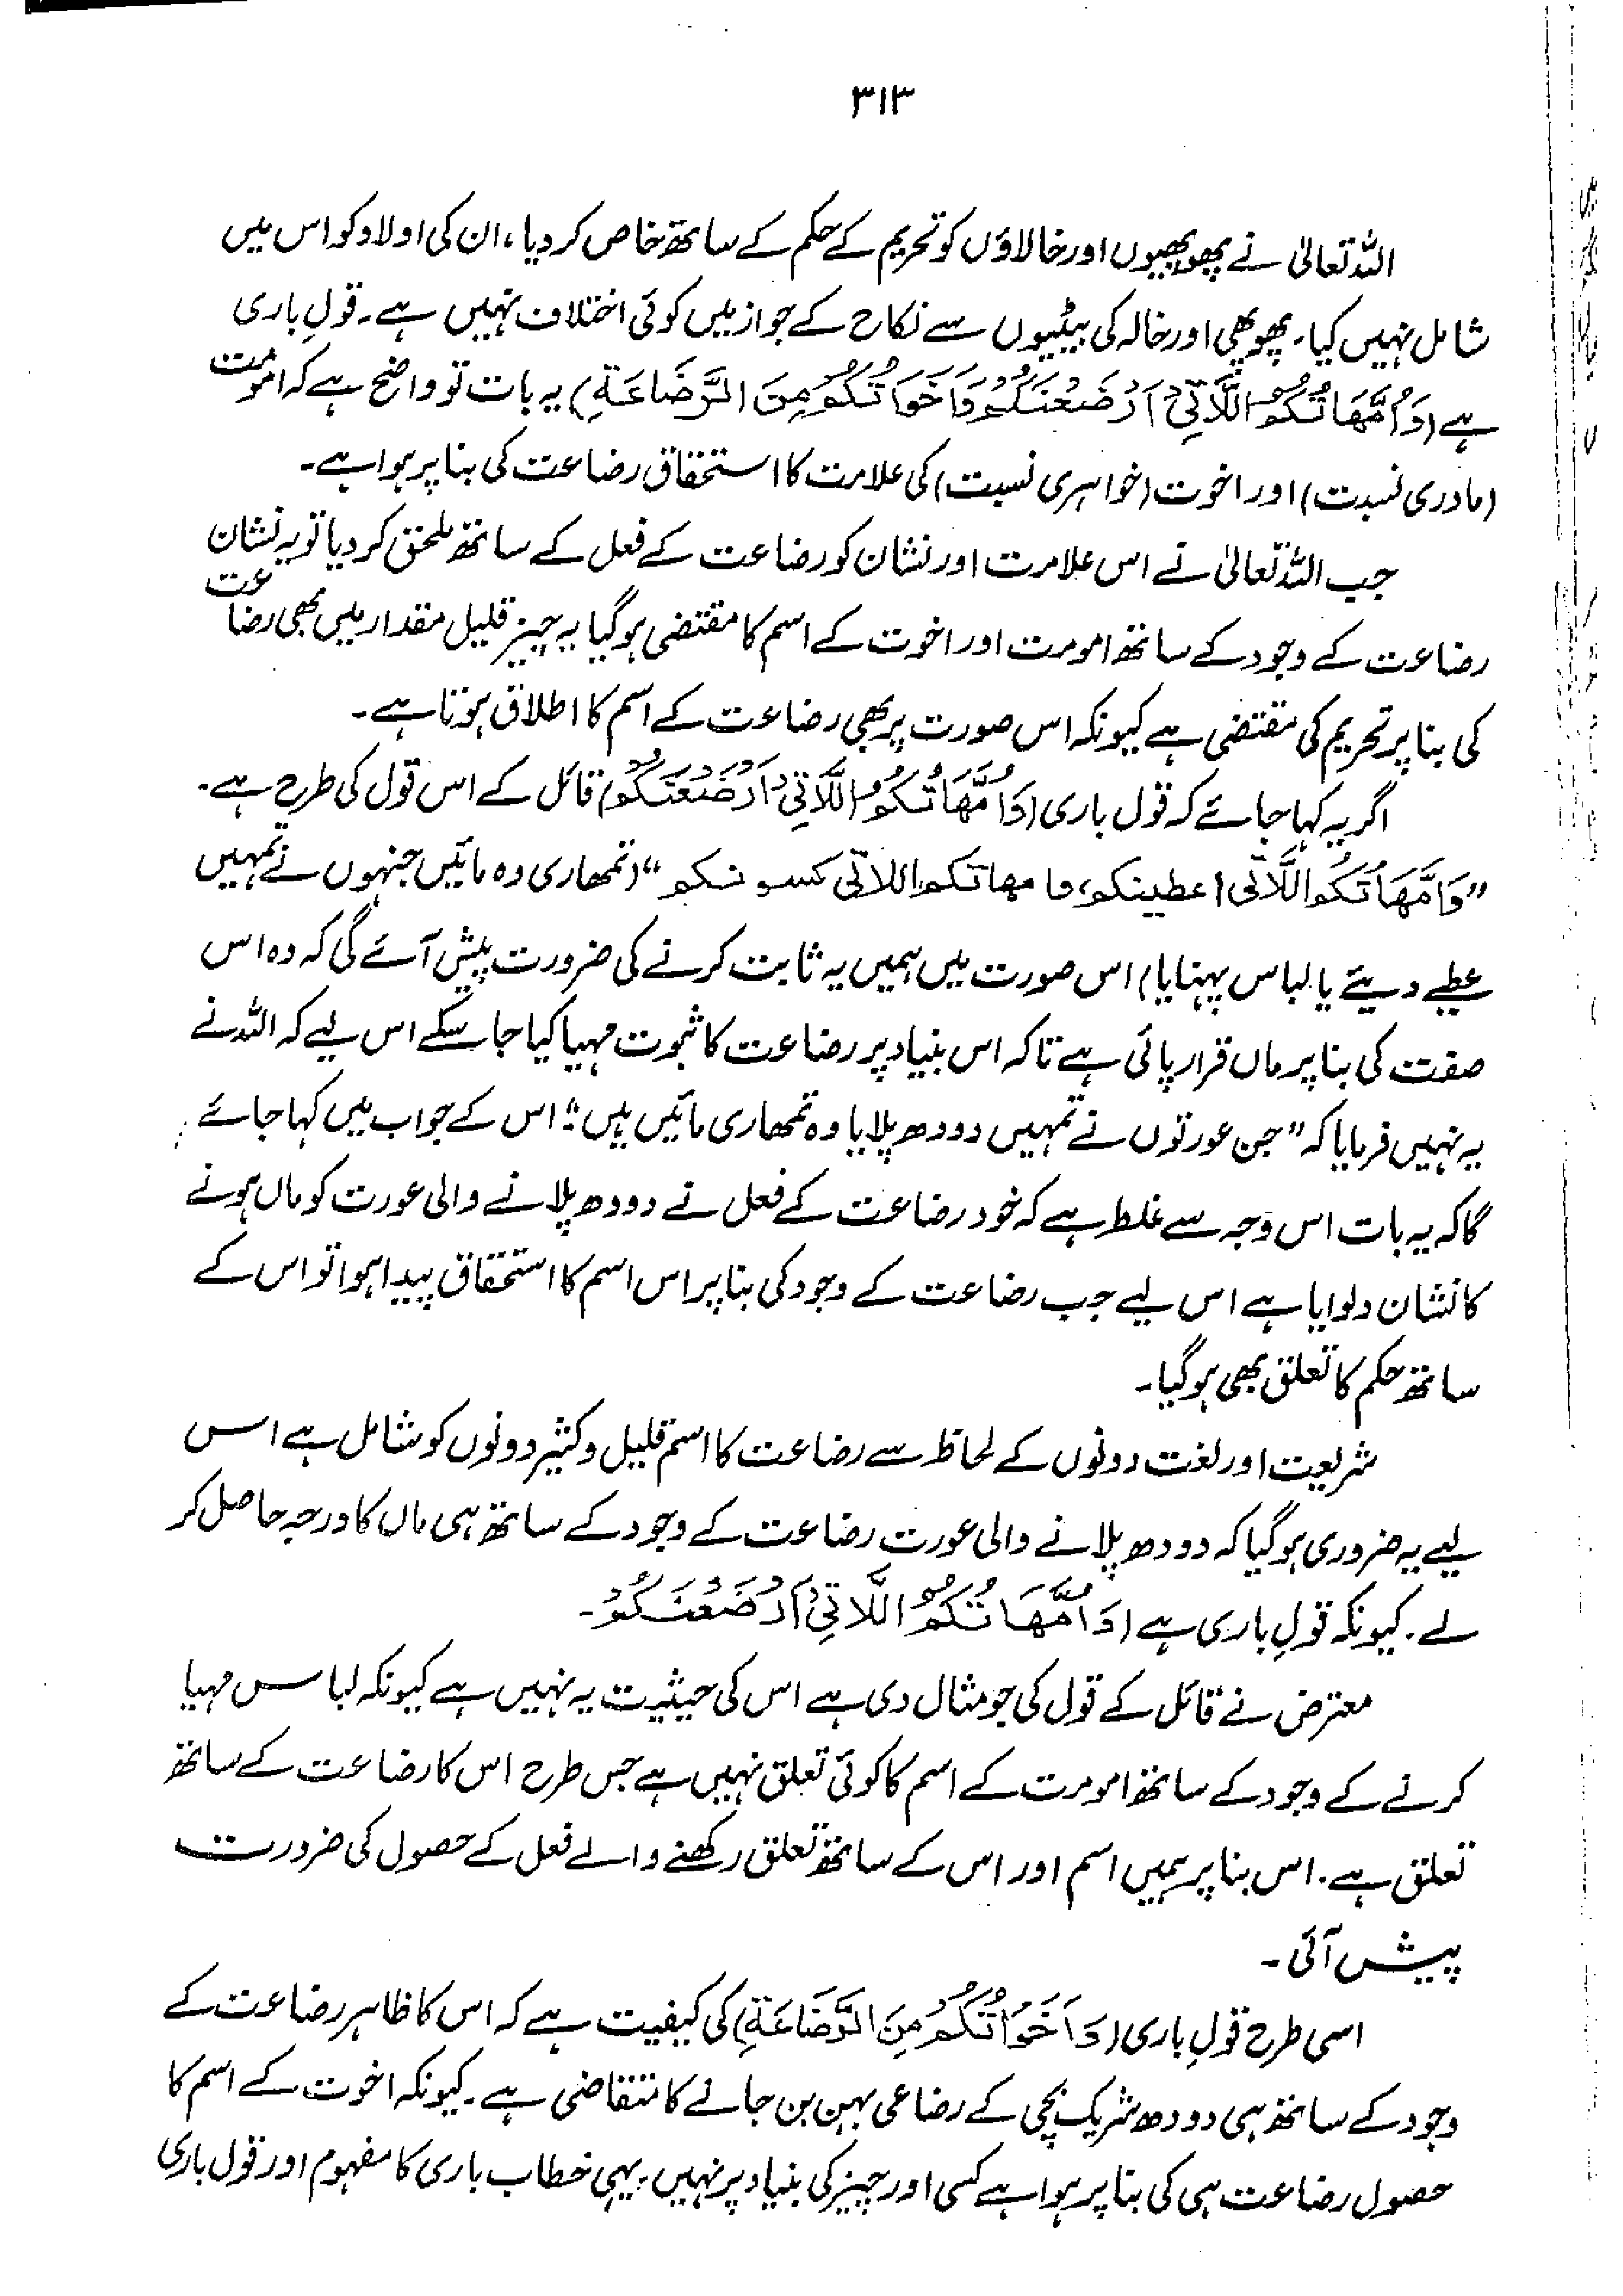 ۳۱۳
اللہ تعالیٰ نے پھوپھیوں اور خالاؤں کو تحریم کے حکم کے ساتھ خاص کر دیا، ان کی اولاد کو اس میں
شامل نہیں کیا۔ پھوپھی اور خالہ کی بیٹیوں سے نکاح کے جواز میں کوئی اختلاف نہیں ہے۔ قولِ باری
ہے (وَاُمَّهَاتُكُمُ اللَّاتِیْ اَرْضَعْنَكُمْ وَاَخَوَاتُكُمْ مِنَ الرَّضَاعَةِ) یہ بات تو واضح ہے کہ امومت
(مادری نسبت) اور اخوت (خواہری نسبت) کی علامت کا استحقاق رضاعت کی بنا پر ہوا ہے۔
جب اللہ تعالیٰ نے اس علامت اور نشان کو رضاعت کے فعل کے ساتھ ملحق کر دیا تو یہ نشان
رضاعت کے وجود کے ساتھ امومت اور اخوت کے اسم کا مقتضی ہو گیا یہ چیز قلیل مقدار میں بھی رضاعت
کی بنا پر تحریم کی مقتضی ہے کیونکہ اس صورت پر بھی رضاعت کے اسم کا اطلاق ہوتا ہے۔
اگر یہ کہا جائے کہ قول باری (وَاُمَّهَاتُكُمُ اللَّاتِیْ اَرْضَعْنَكُمْ) قائل کے اس قول کی طرح ہے۔
”وَاُمَّهَاتُكُمُ اللَّاتی اعطینکم، وامهاتکم اللاتی کسونکم“ (تمھاری وہ مائیں جنہوں نے تمہیں
عطیے دیئے یا لباس پہنایا) اس صورت میں ہمیں یہ ثابت کرنے کی ضرورت پیش آئے گی کہ وہ اس
صفت کی بنا پر ماں قرار پائی ہے تاکہ اس بنیاد پر رضاعت کا ثبوت مہیا کیا جا سکے اس لیے کہ اللہ نے
یہ نہیں فرمایا کہ ”جن عورتوں نے تمہیں دودھ پلایا وہ تمھاری مائیں ہیں“ اس کے جواب میں کہا جائے
گا کہ یہ بات اس وجہ سے غلط ہے کہ خود رضاعت کے فعل نے دودھ پلانے والی عورت کو ماں ہونے
کا نشان دلوایا ہے اس لیے جب رضاعت کے وجود کی بنا پر اس اسم کا استحقاق پیدا ہوا تو اس کے
ساتھ حکم کا تعلق بھی ہو گیا۔
شریعت اور لغت دونوں کے لحاظ سے رضاعت کا اسم قلیل و کثیر دونوں کو شامل ہے اس
لیے یہ ضروری ہو گیا کہ دودھ پلانے والی عورت رضاعت کے وجود کے ساتھ ہی ماں کا درجہ حاصل کر
لے۔ کیونکہ قولِ باری ہے (وَاُمَّهَاتُكُمُ اللَّاتِیْ اَرْضَعْنَكُمْ۔
معترض نے قائل کے قول کی جو مثال دی ہے اس کی حیثیت یہ نہیں ہے کیونکہ لباس مہیا
کرنے کے وجود کے ساتھ امومت کے اسم کا کوئی تعلق نہیں ہے جس طرح اس کا رضاعت کے ساتھ
تعلق ہے۔ اس بنا پر ہمیں اسم اور اس کے ساتھ تعلق رکھنے والے فعل کے حصول کی ضرورت
پیش آئی۔
اسی طرح قولِ باری (وَاَخَوَاتُكُمْ مِنَ الرَّضَاعَةِ) کی کیفیت ہے کہ اس کا ظاہر رضاعت کے
وجود کے ساتھ ہی دودھ شریک بچی کے رضاعی بہن بن جانے کا متقاضی ہے۔ کیونکہ اخوت کے اسم کا
حصول رضاعت ہی کی بنا پر ہوا ہے کسی اور چیز کی بنیاد پر نہیں۔ یہی خطاب باری کا مفہوم اور قول باری